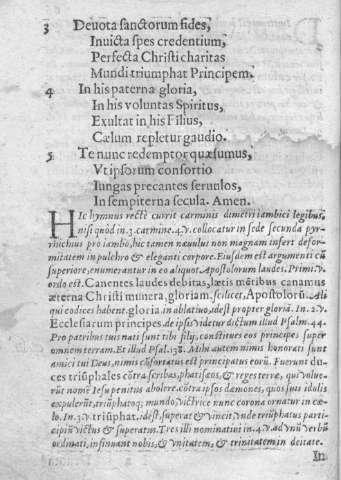 3 Deuota sanctorum fides,
Inuicta spes credentium,
Perfecta Christi charitas
Mundi triumphat Principem.
4 In his paterna gloria,
In his voluntas Spiritus,
Exultat in his Filius,
Cælum repletur gaudio.
5 Te nunc redemptor quæsumus,
Vt ipsorum consortio
Iungas precantes seruulos,
In sempiterna secula. Amen.
HIc hymnus rectè currit carminis dimetri iambici legibus,
nisi quòd in .3. carmine .4. v. collocatur in sede secunda pyr-
rhichius pro iambo, hic tamen næuulus non magnam infert defor-
mitatem in pulchro & eleganti corpore. Eiusdem est argumenti cũ
superiore, enumerantur in eo aliquot Apostolorum laudes. Primi. v.
ordo est. Canentes laudes debitas, lætis mẽtibus canamus
æterna Christi munera, gloriam, scilicet, Apostolorũ. Ali
qui codices habent. gloria. in ablatiuo, idest propter gloriã. In .2. v.
Ecclesiarum principes. de ipsis videtur dictum illud Psalm. 44.
Pro patribus tuis nati sunt tibi filij, constitues eos principes super
omnem terram. Et illud Psal. 138. Mihi autem nimis honorati sunt
amici tui Deus, nimis cõfortatus est principatus eorũ. Fuerunt du-
ces triũphales cõtra scribas, pharisæos, & reges terræ, qui volue-
rũt nomẽ Iesu penitus abolere. cõtra ipsos dæmones, quos suis idolis
expulerũt, triũphatoq; mundo, victrice nunc corona ornatur in cæ-
lo. In .3. v. triũphat. idest, superat & vincit, vnde triũphatus parti-
cipiũ victus & superatus. Tres illi nominatiui in .4. v. ad vnũ verbũ
ordinati, insinuant nobis, & vnitatem, & trinitatem in deitate.